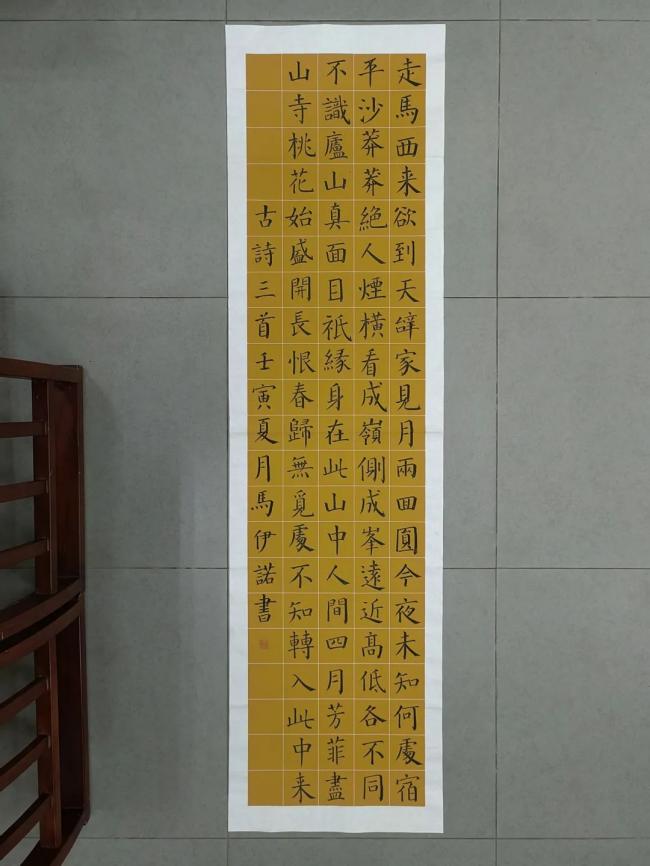 走馬西来欲到天辭家見月兩囬圓今夜未知何處宿
平沙莽莽絕人煙橫看成嶺側成峯遠近髙低各不同
不識廬山真面目祇緣身在此山中人間四月芳菲盡
山寺桃花始盛開長恨春歸無覓處不知轉入此中来
古詩三首壬寅夏月馬伊諾書